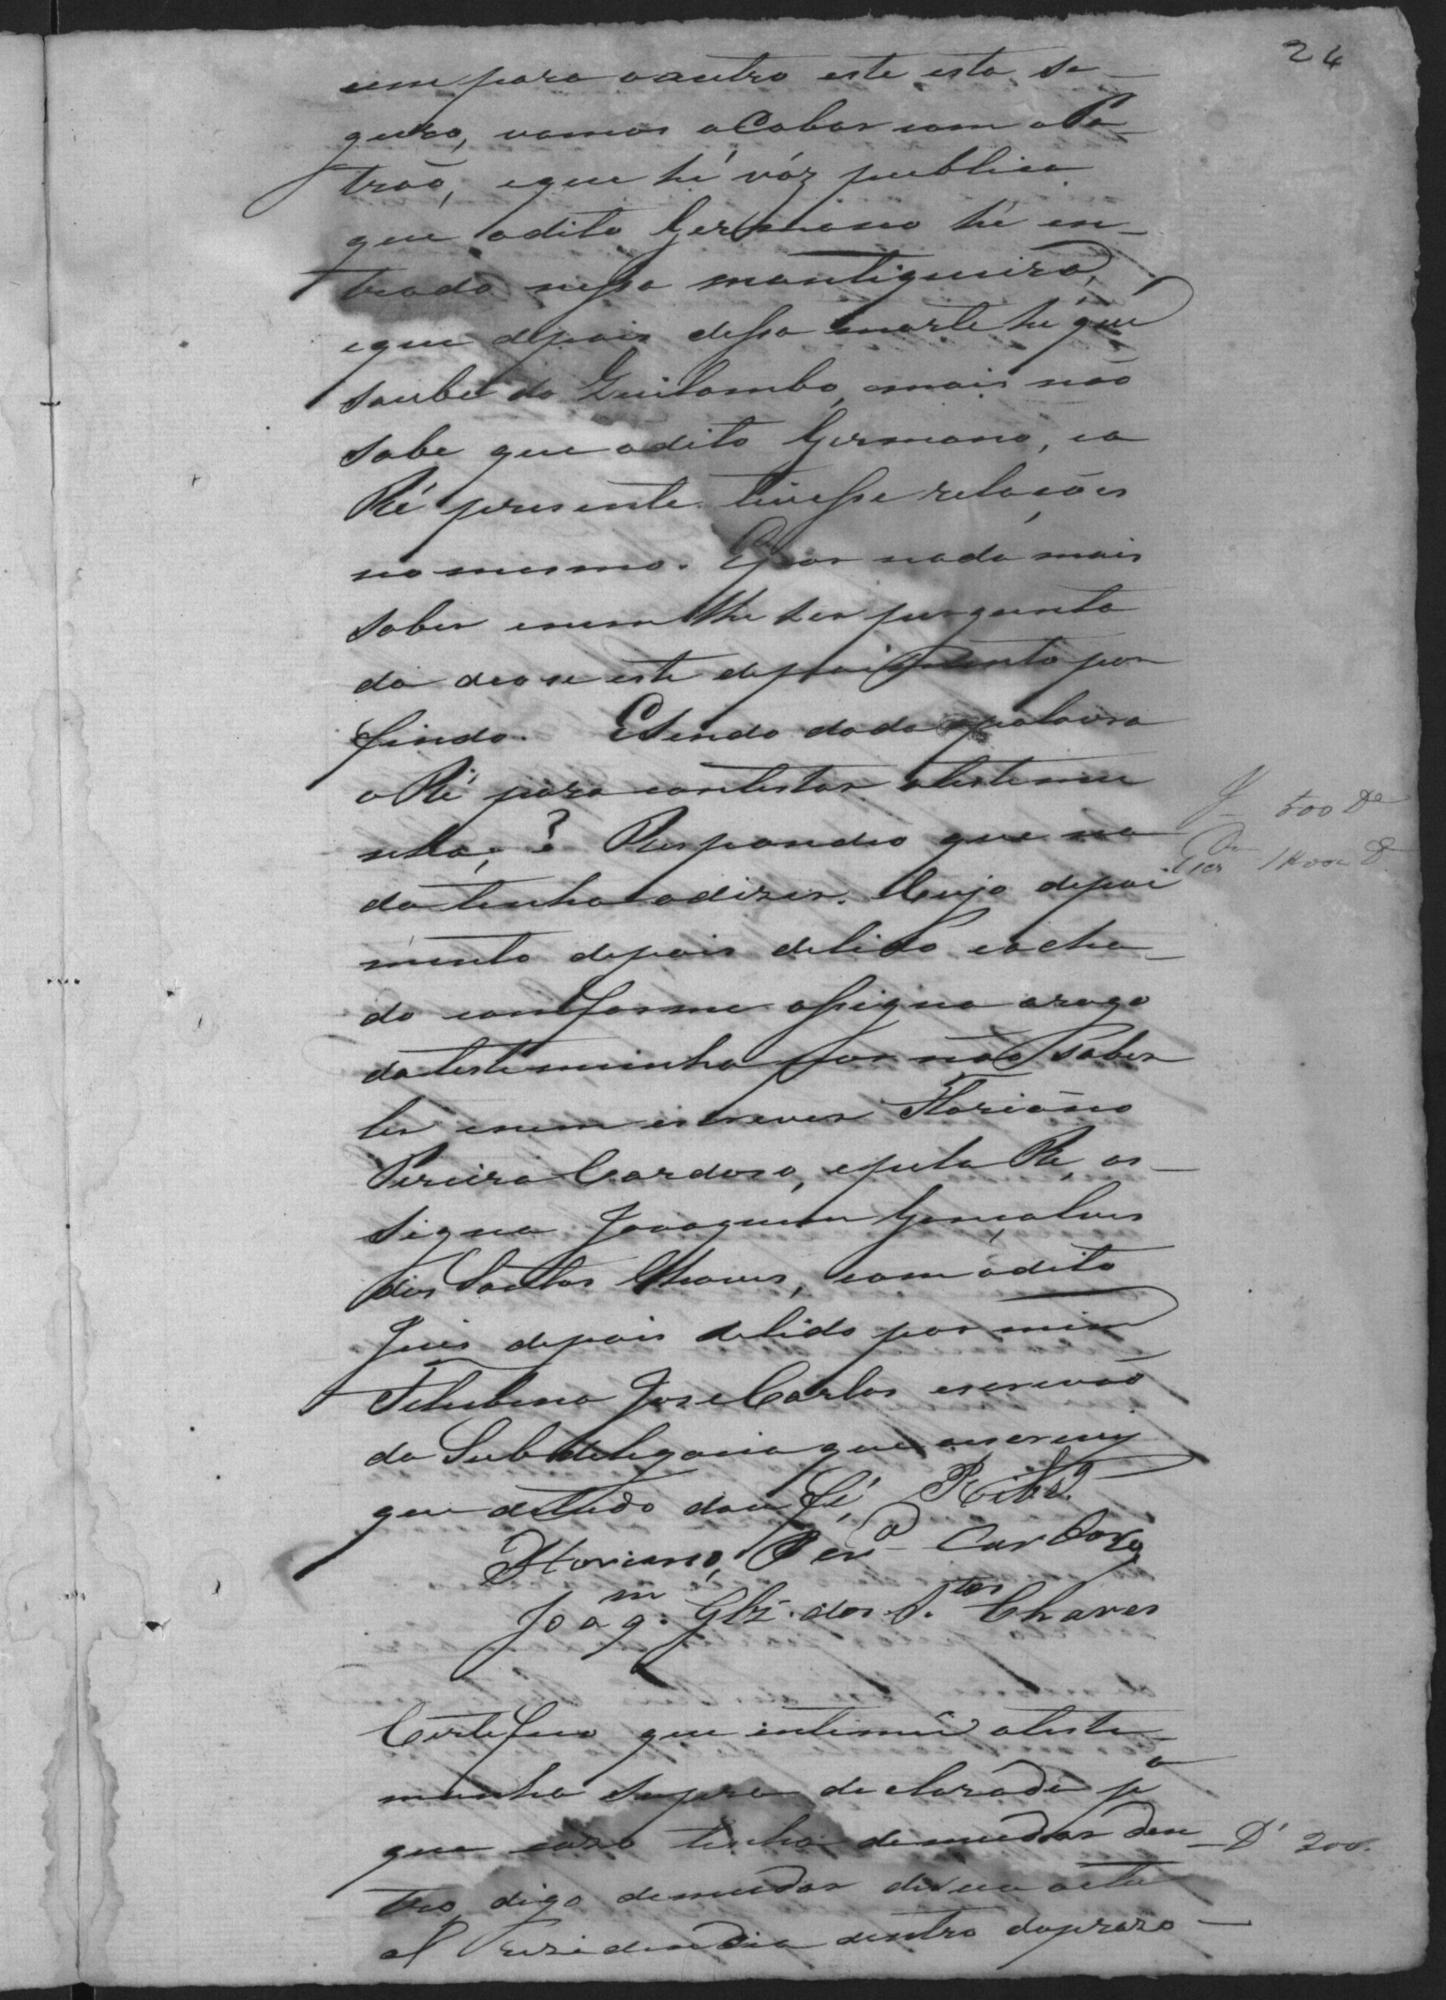 24
um para o outro este esta se-
guro, vamos acabar com o Pa-
trão, e que hé vóz publica
que o dito Germano hé en-
trado nessa mantigueira,
e que depois dessa morte hé que
soube do Quilombo, mais não
sabe que o dito Germano, e a
Ré presente tivesse relações
no mesmo. E por nada mais
saber e nem lhe ser pergunta
do deo se este depoimento por
findo. E sendo dada a palavra
a Ré para contestar a testemu
nha, ? Respondeo que na
da tenha a dizer. Cujo depoi
mento depois de lido e acha-
do conforme assigna a rogo
da testemunha por não saber
ler e nem escrever Floriano
Pereira Cardoso, e pela Ré, as-
signa Joaquim Gonçalves
dos Santos Chaves, com o dito
Juis depois de lido por mim
José Carlos escrivão
da Subdelegacia que o escrevy
que de tudo dou fé,
Floriano, Perª Cardozo
Joaqm. Glz. dos S.tos Chaves
Certefico que intimei a teste-
munha supra declarada pª
que caso tenha de mudar den-
tro digo de mudar de sua actu
al Residencia dentro do prazo-
500
D' 200.